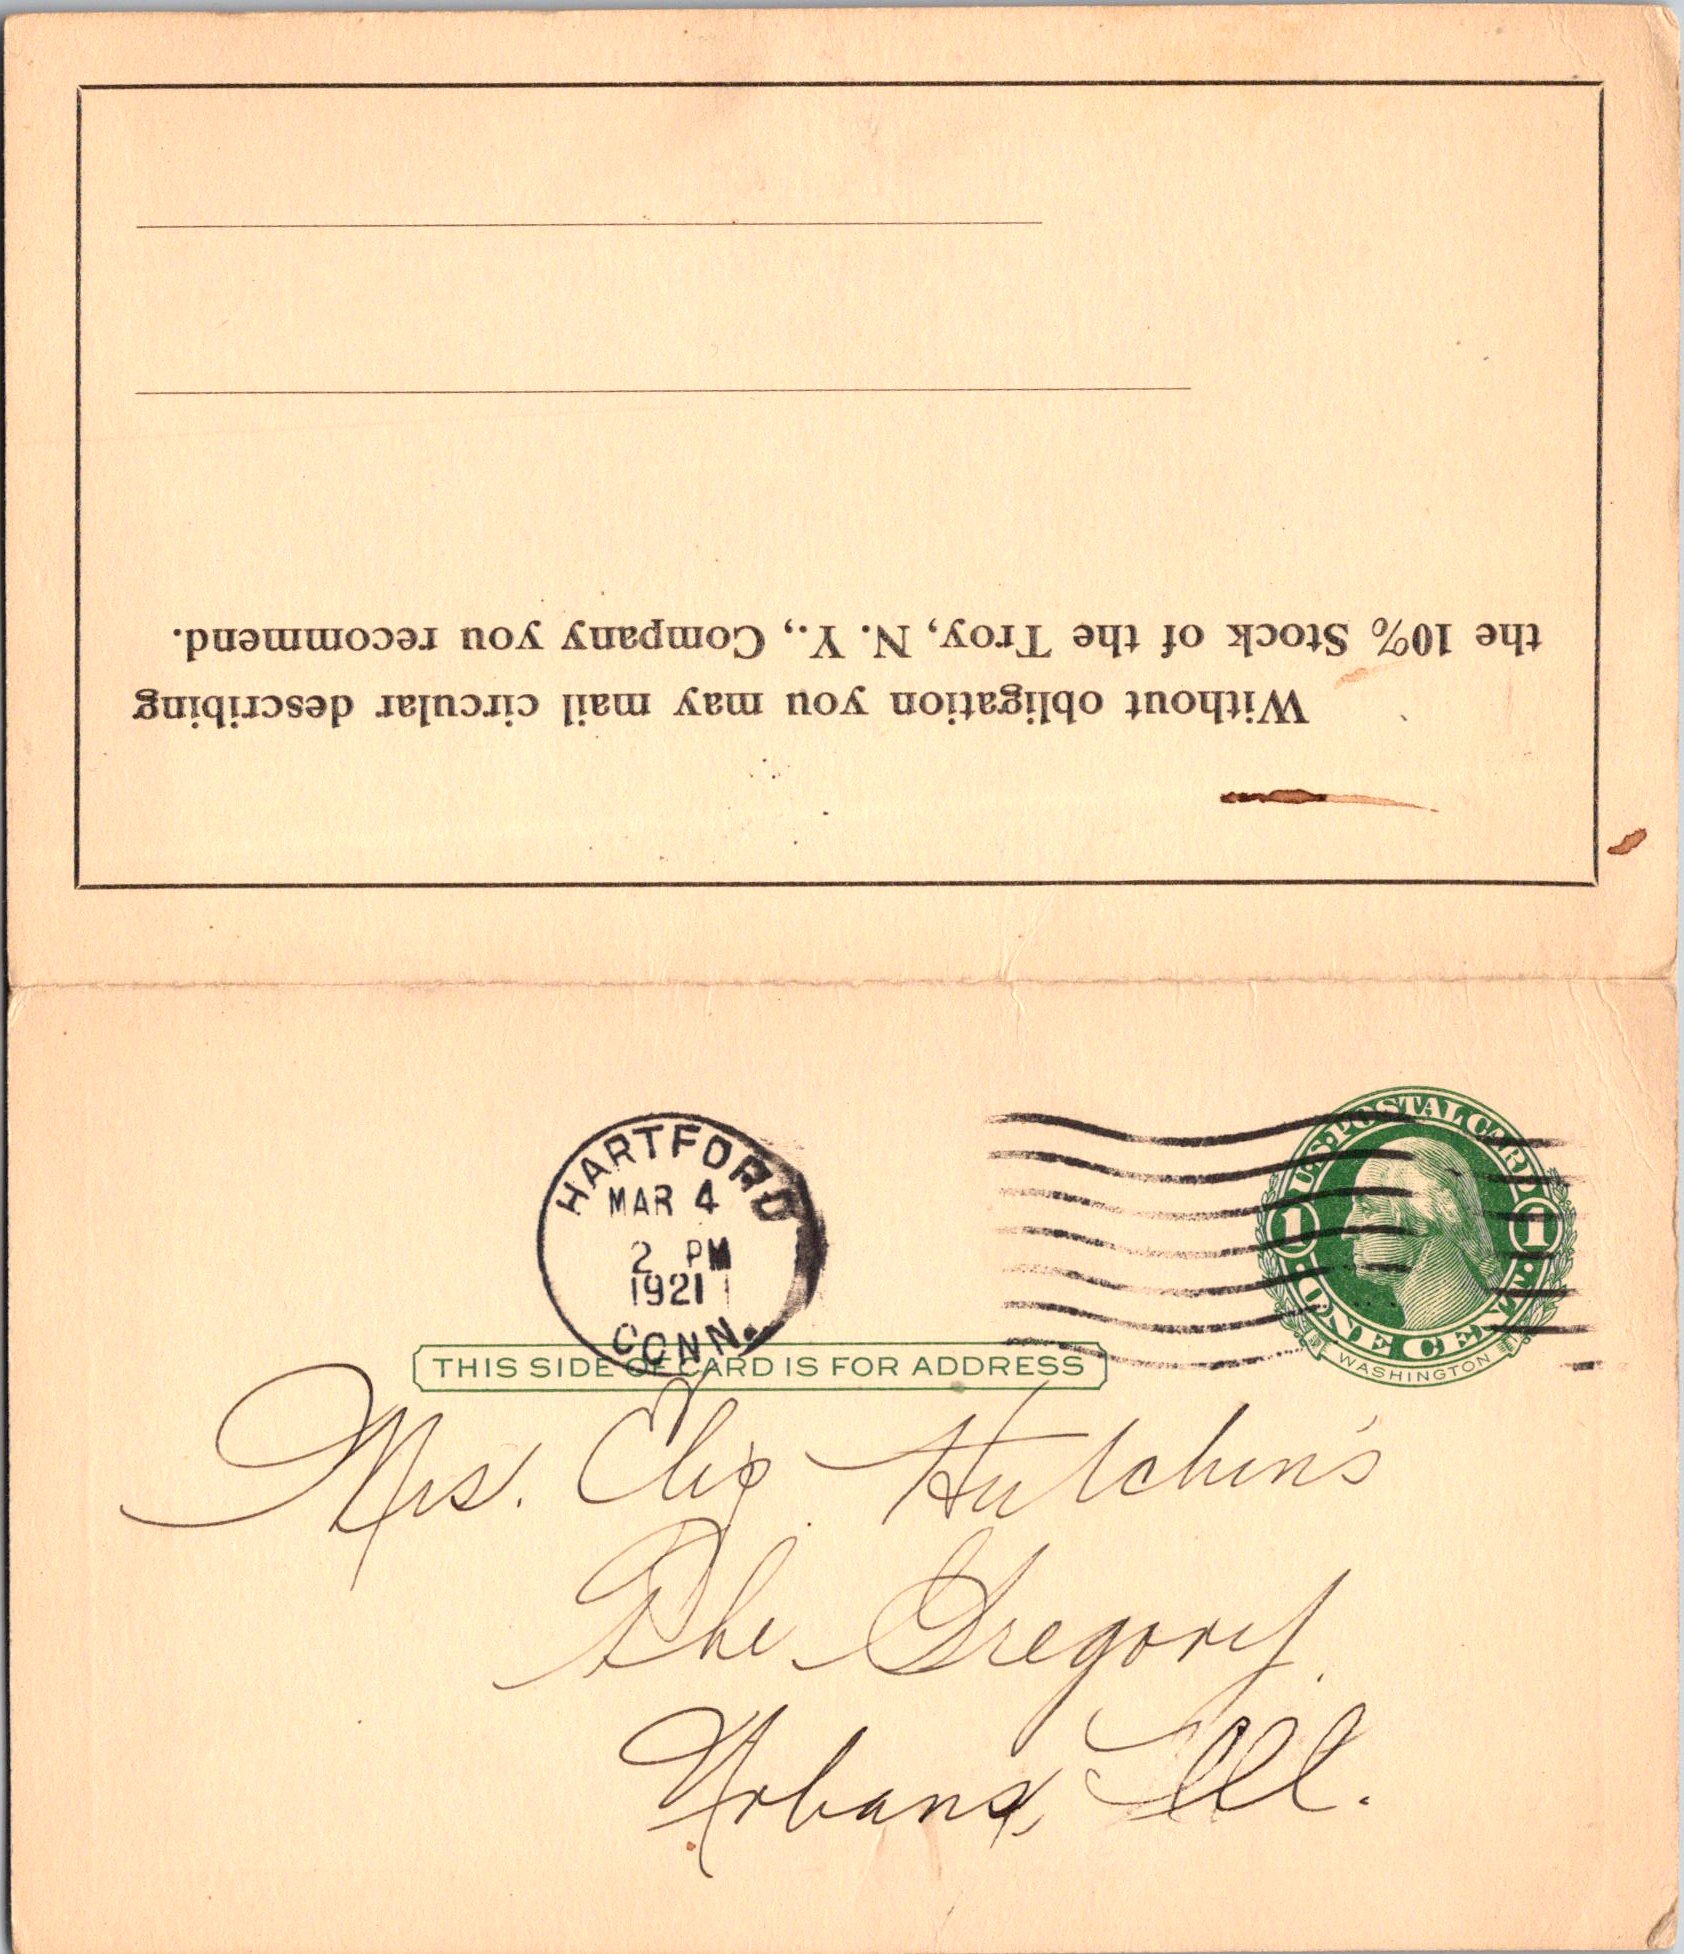 Without obligation you may mail circular describing
the 10% Stock of the Troy, N. Y., Company you recommend.
HARTFORD
MAR 4
2 PM
1921
CONN.
U.S. POSTAL CARD
1 1
ONE CENT
WASHINGTON
THIS SIDE OF CARD IS FOR ADDRESS
Mrs. Hutchin's
The Gregory.
Urbana, Ill.